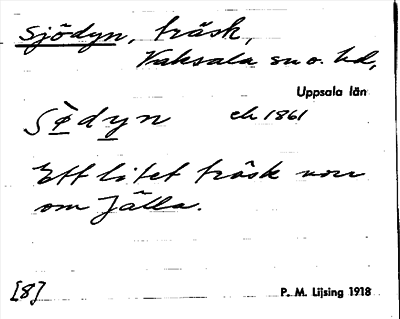 Sjödyn, träsk,
Vaksala sn o. hd,
Uppsala län
Sø̀dyn ek 1861
Ett litet träsk norr
om Jälla.
[8] P. M. Lijsing 1918